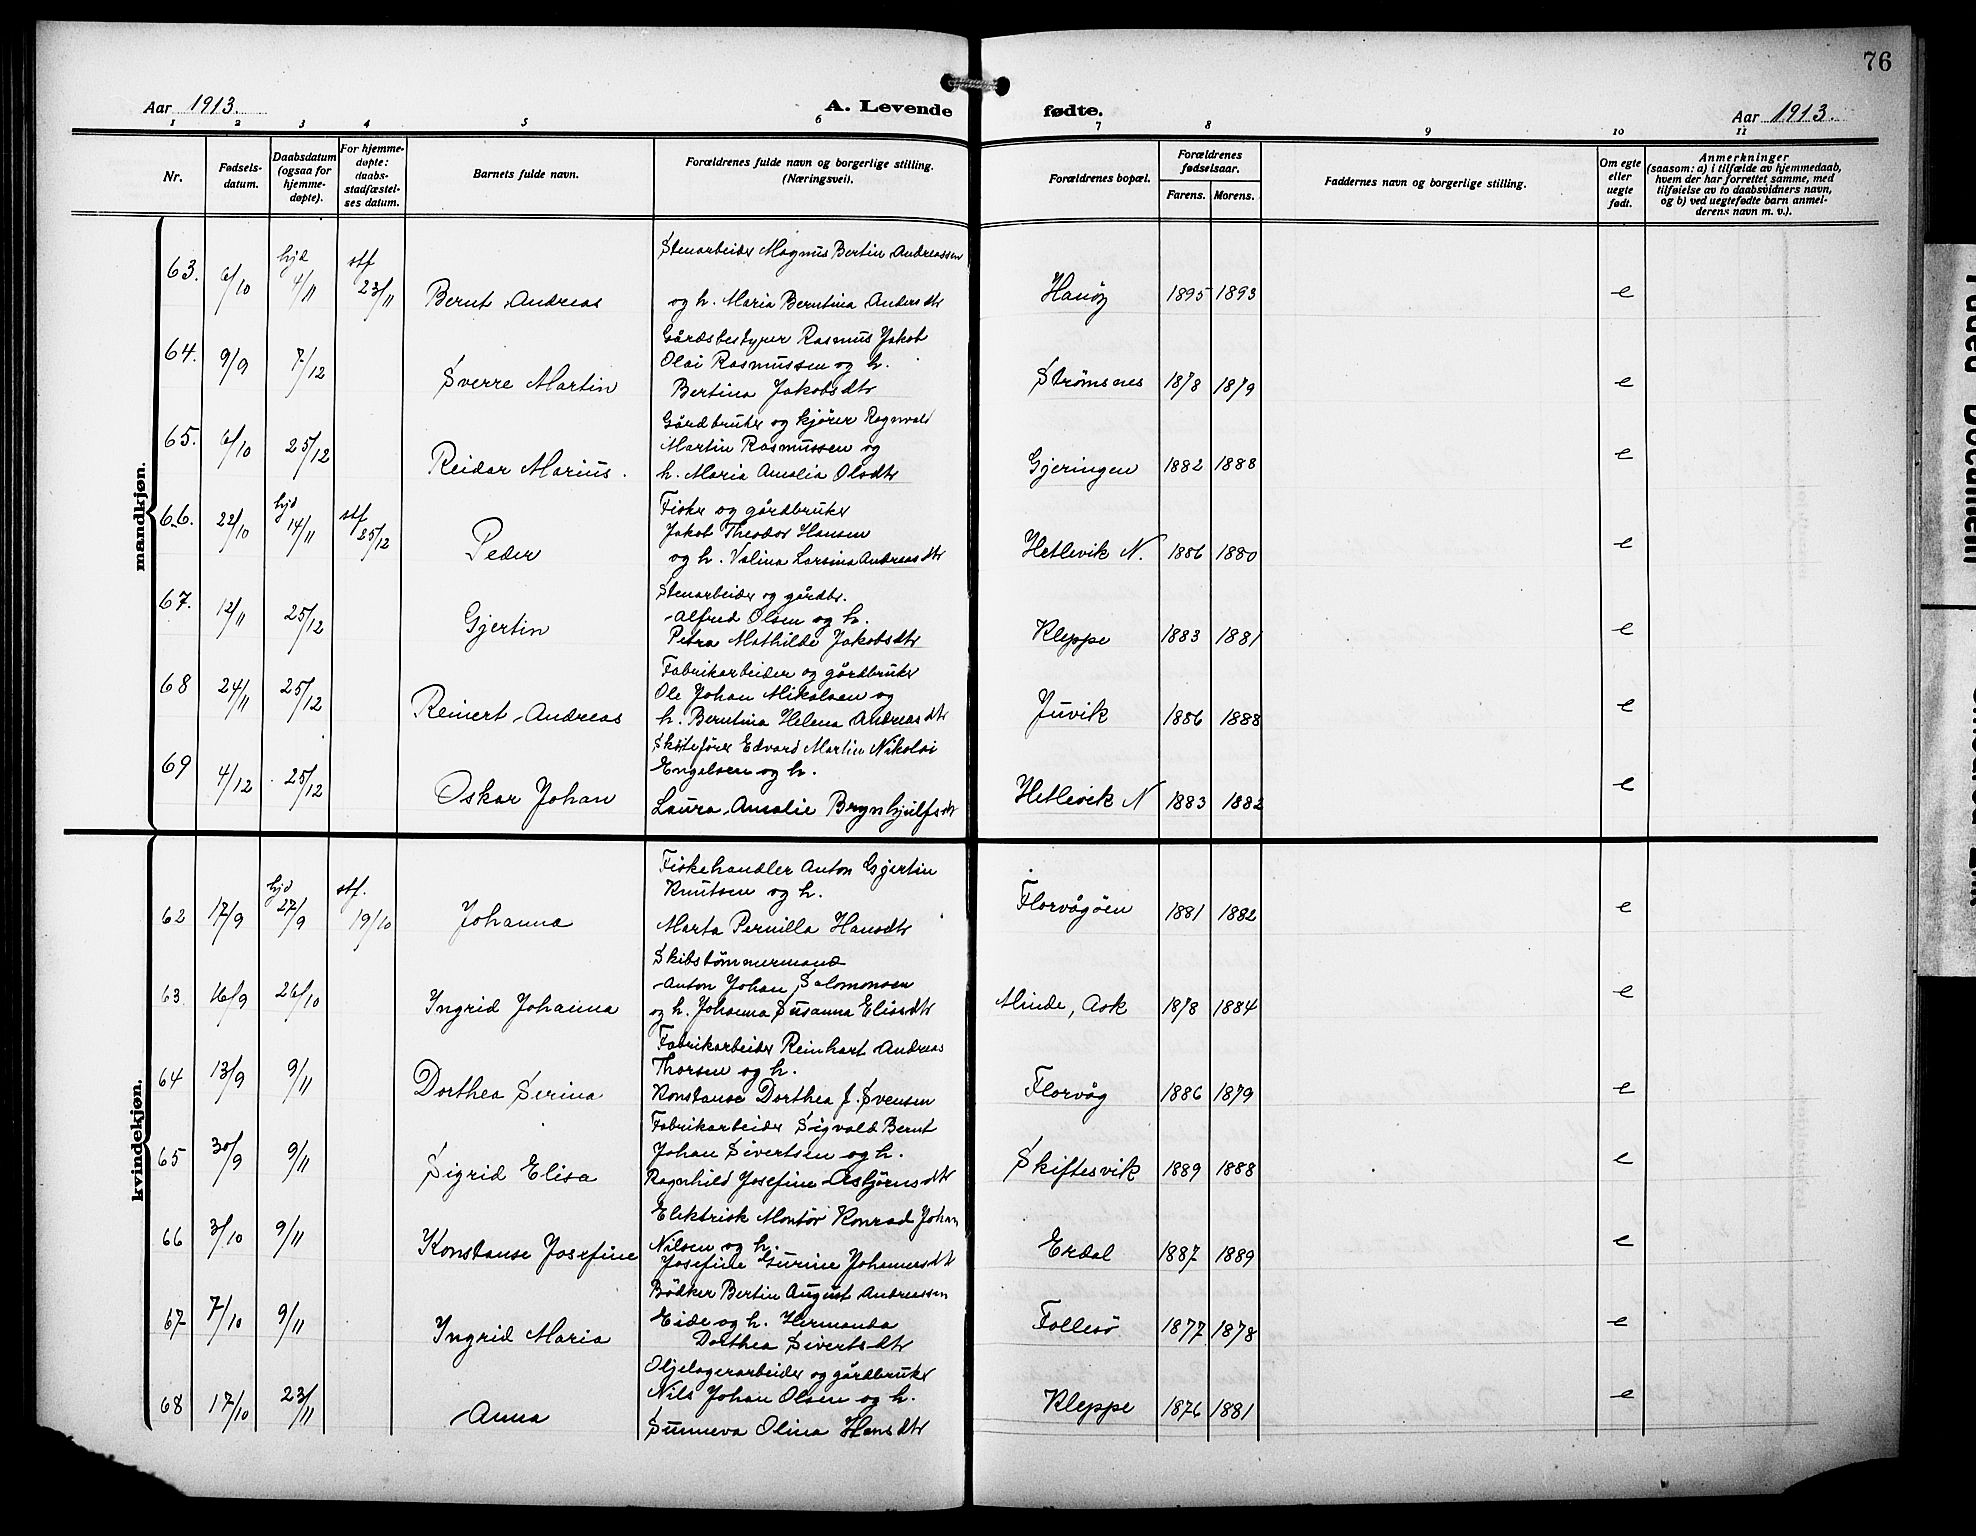 76
Aar 1913. A. Levende fødte. Aar 1913.
1 2 3 4 5 6 7 8 9 10 11
Nr.
Fødsels-
datum.
Daabsdatum
(ogsaa for
hjemme-
døpte).
For hjemme-
døpte:
daabs-
stadfæstel-
ses datum.
Barnets fulde navn.
Forældrenes fulde navn og borgerlige stilling.
(Næringsvei).
Forældrenes bopæl.
Forældrenes
fødselsaar.
Farens. Morens.
Faddernes navn og borgerlige stilling.
Om egte
eller
uegte
født.
Anmerkninger
(saasom: a) i tilfælde av hjemmedaab,
hvem der har forrettet samme, med
tilføielse av to daabsvidners navn,
og b) ved uegtefødte barn anmel-
derens navn m. v.).
mandkjøn.
63. 6/10 hjd 4/11 stf 23/11 Bernt Andreas
Stenarbeider Magnus Bertin Andreassen
og h. Maria Berntina Andersdtr
Hanøy 1895 1893 e
64. 9/9 7/12 Sverre Martin
Gårdsbestyrer Rasmus Jakob
Olai Rasmussen og h.
Bertina Jakobsdtr
Strømsnes 1878 1879 e
65. 6/10 25/12 Reidar Marius.
Gårdbruker og kjører Ragnvald
Martin Rasmussen og
h. Maria Amalia Olsdtr
Gjeringen 1882 1888 e
66. 22/10 hjd 14/11 stf 25/12 Peder
Fisker og gårdbruker
Jakob Theodor Hansen
og h. Valina Larsina Andreasdtr
Hetlevik N. 1886 1880 e
67. 12/11 25/12 Gjertin
Stenarbeider og gårdbr.
Alfred Olsen og h.
Petra Mathilde Jakobsdtr
Kleppe 1883 1881 e
68 24/11 25/12 Reinert Andreas
Fabrikarbeider og gårdbruker
Ole Johan Mikalsen og
h. Berntina Helena Andreasdtr
Juvik 1886 1888 e
69 4/12 25/12 Oskar Johan
Skøitefører Edvard Martin Nikolai
Engelsen og h.
Laura Amalie Brynhjulfsdtr
Hetlevik N 1883 1882 e
kvindekjøn.
62 17/9 hjd 27/9 stf. 19/10 Johanna
Fiskehandler Anton Gjertin
Knutsen og h.
Marta Pernilla Hansdtr
Florvågøen 1881 1882 e
63 16/9 26/10 Ingrid Johanna
Skibstømmermand
Anton Johan Salomonsen
og h. Johanna Susanna Eliasdtr
Minde, Ask 1878 1884 e
64 13/9 9/11 Dorthea Serina
Fabrikarbeider Reinhart Andreas
Thorsen og h.
Konstanse Dorthea f. Svensen
Florvåg 1886 1879 e
65 30/9 9/11 Sigrid Elisa
Fabrikarbeider Sigvald Bernt
Johan Sivertsen og h.
Ragnhild Josefine Asbjørnsdtr
Skiftesvik 1889 1888 e
66 3/10 9/11 Konstanse Josefine
Elektrisk Montør Konrad Johan
Nilsen og h.
Josefine Gurine Johannesdtr
Erdal 1887 1889 e
67 7/10 9/11 Ingrid Maria
Bødker Bertin August Andreassen
Eide og h. Hermanda
Dorthea Sivertsdtr
Follesø 1877 1878 e
68 17/10 23/11 Anna
Oljelagerarbeider og gårdbruker
Nils Johan Olsen og h.
Sunneva Olina Hansdtr
Kleppe 1876 1881 e